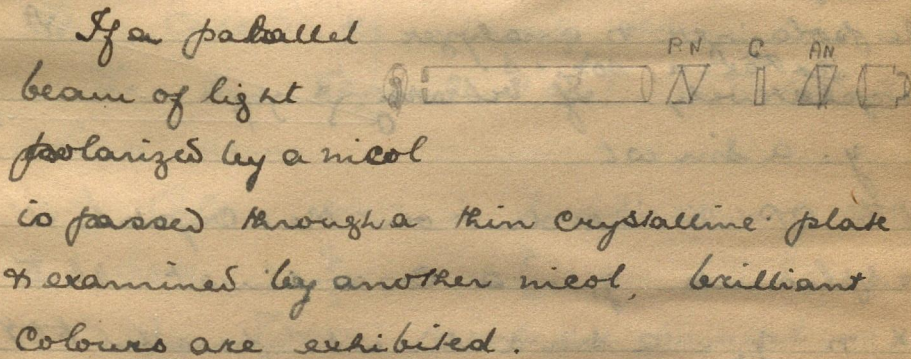 If a parallel
P.N C AN
beam of light
polarized by a nicol
is passed through a thin crystalline plate
& examined by another nicol, brilliant
colours are exhibited.